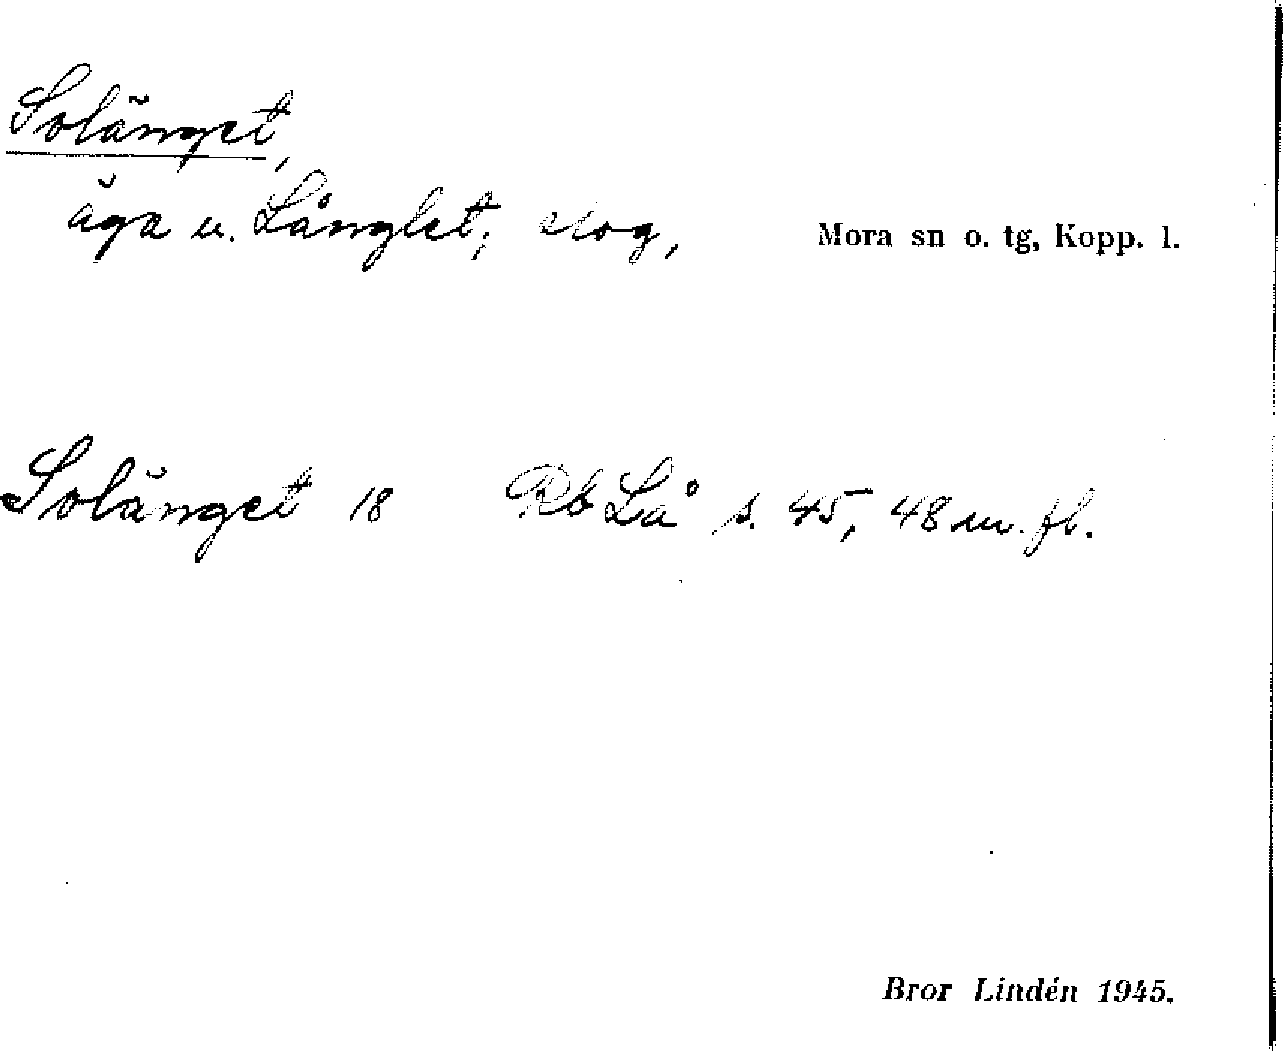 Solänget,
äga u. Långlet; slog, Mora sn o. tg, Kopp. l.
Solänget 18 Rb Lå s. 45, 48 m. fl.
Bror Lindén 1945.